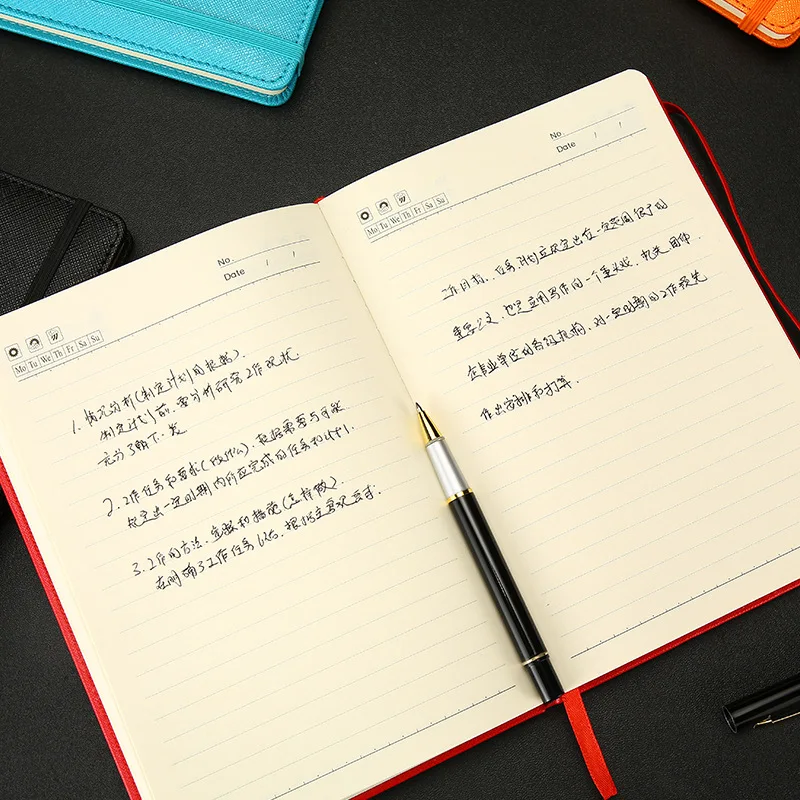 No.
Date / /
Mo Tu We Th Fr Sa Su
1. 情况分析(制定计划的根据).
制定计划前,要分析研究工作现状.
充分了解下.
2. 工作任务和要求(做什么).根据需要与可能
规定出一定时期内所应完成的任务和
3. 工作的方法、步骤和措施(怎样做).
在明确了工作任务以后,根据主客观
No.
Date / /
Mo Tu We Th Fr Sa Su
工作目标、任务.计划应规定出在一定范围
重要公文.也是应用写作的一个重头戏.机关.团体.
企事业单位的各级机构,对一定时期的工作预先
作出安排和打算.